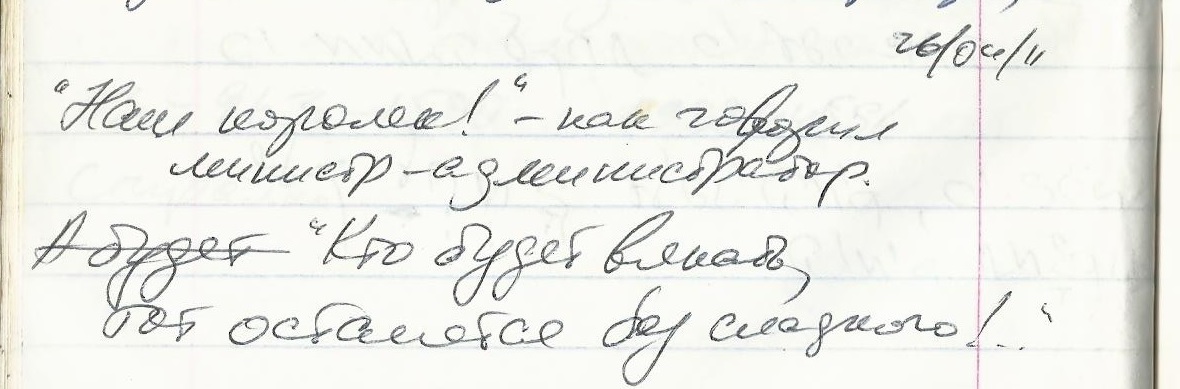 26/04/11
"Наш королек!" – как говорил
министр-администратор.
А будет "Кто будет вякать,
тот останется без сладкого!.."